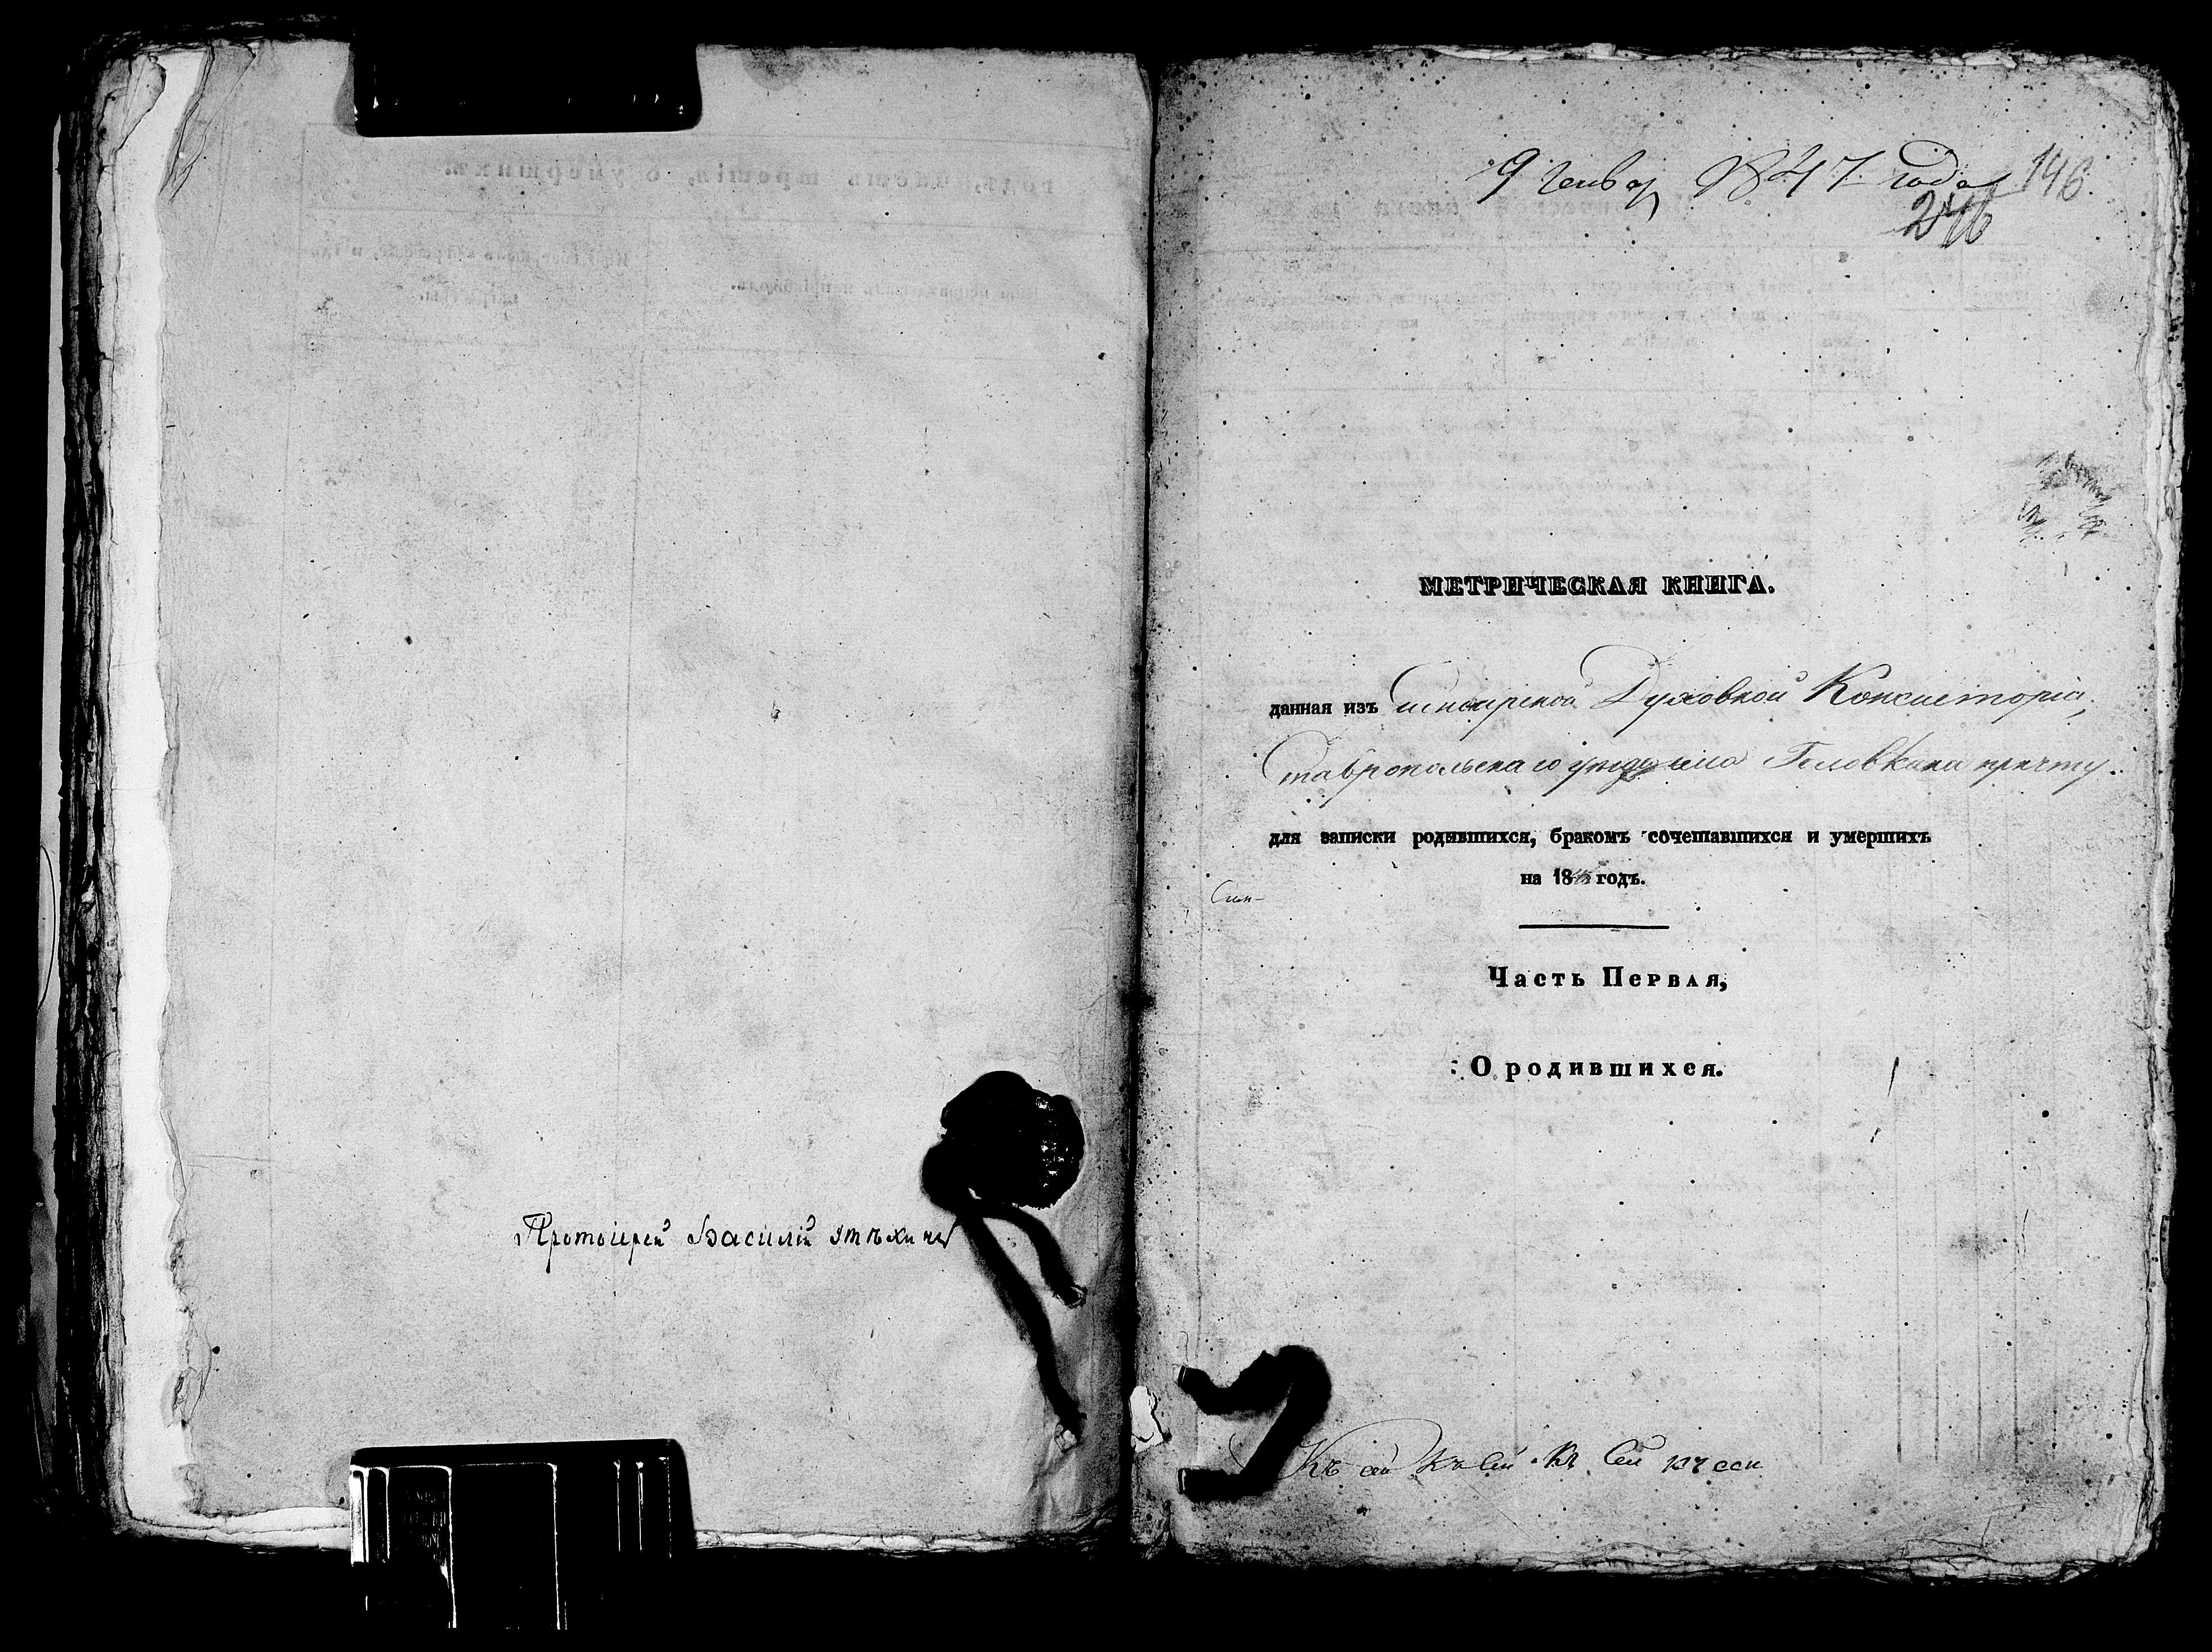 Протоіерей Василій Утѣхинъ
9 Генвар 1847 года 146.
246
МЕТРИЧЕСКАЯ КНИГА.
данная изъ Симбирской Духовной Консисторіи,
Ставропольскаго уѣзда села Головкина причту.
для записки родившихся, бракомъ сочетавшихся и умершихъ
на 18 годъ.
Сим-
Часть Первая,
О родившихся.
Къ сей Къ Сей Къ Сей